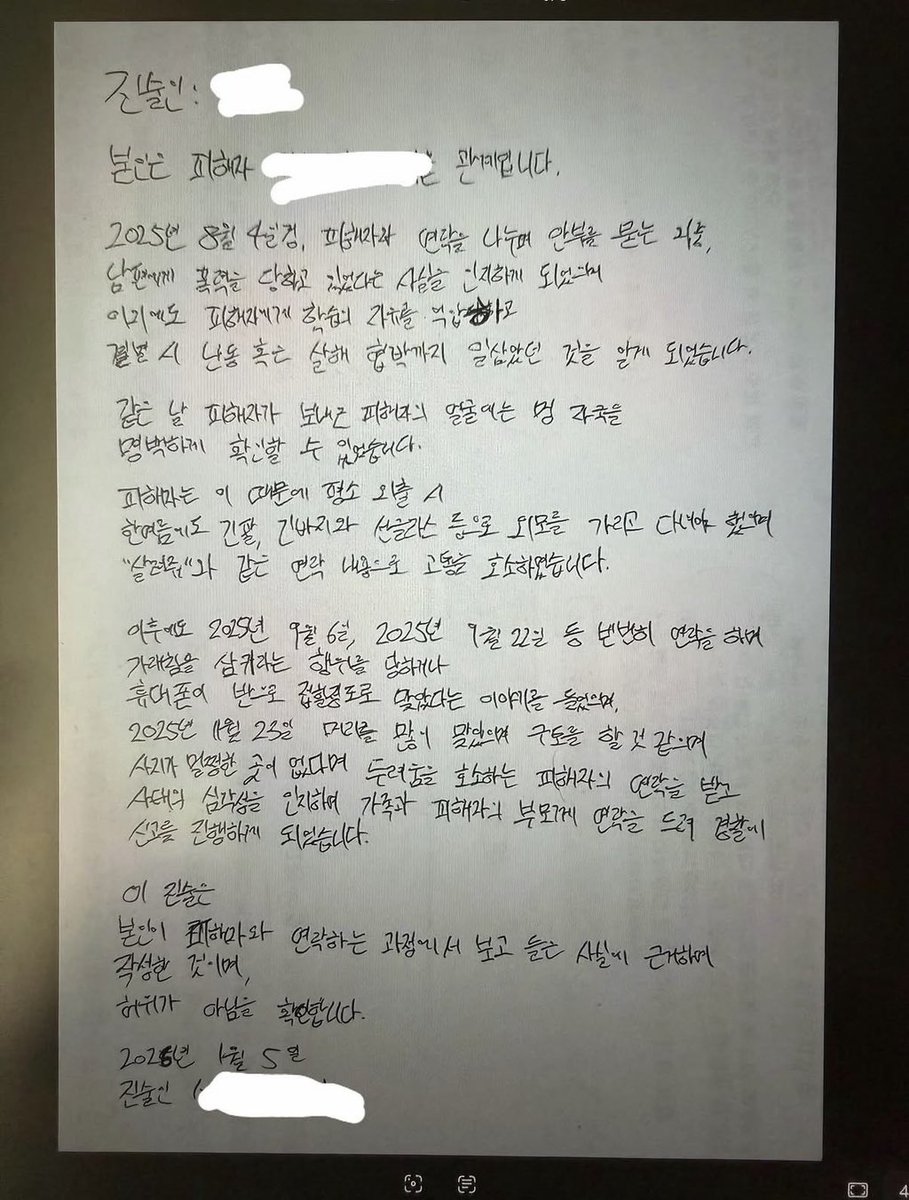 진술인:
본인은 피해자 관계입니다.
2025년 8월 4일경, 피해자와 연락을 나누며 안부를 묻는 와중,
남편에게 폭력을 당하고 있었다는 사실을 인지하게 되었으며
이외에도 피해자에게 학습의 자유를 억압하고
결별 시 난동 혹은 살해 협박까지 일삼았던 것을 알게 되었습니다.
같은 날 피해자가 보내준 피해자의 얼굴에는 멍 자국을
명백하게 확인할 수 있었습니다.
피해자는 이 때문에 평소 외출 시
한여름에도 긴팔, 긴바지와 선글라스 등으로 외모를 가리고 다녀야 했으며
"살려줘"와 같은 연락 내용으로 고통을 호소하였습니다.
이후에도 2025년 9월 6일, 2025년 9월 22일 등 빈번히 연락을 하며
가래침을 삼키라는 행위를 당하거나
휴대폰이 반으로 접힐정도로 맞았다는 이야기를 들었으며,
2025년 11월 23일 머리를 많이 맞았으며 구토를 할 것 같으며
사지가 멀쩡한 곳이 없다며 두려움을 호소하는 피해자의 연락을 받고
사태의 심각성을 인지하며 가족과 피해자의 부모께 연락을 드려 경찰에
신고를 진행하게 되었습니다.
이 진술은
본인이 피해자와 연락하는 과정에서 보고 들은 사실에 근거하며
작성한 것이며,
허위가 아님을 확인합니다.
2026년 1월 5일
진술인 (